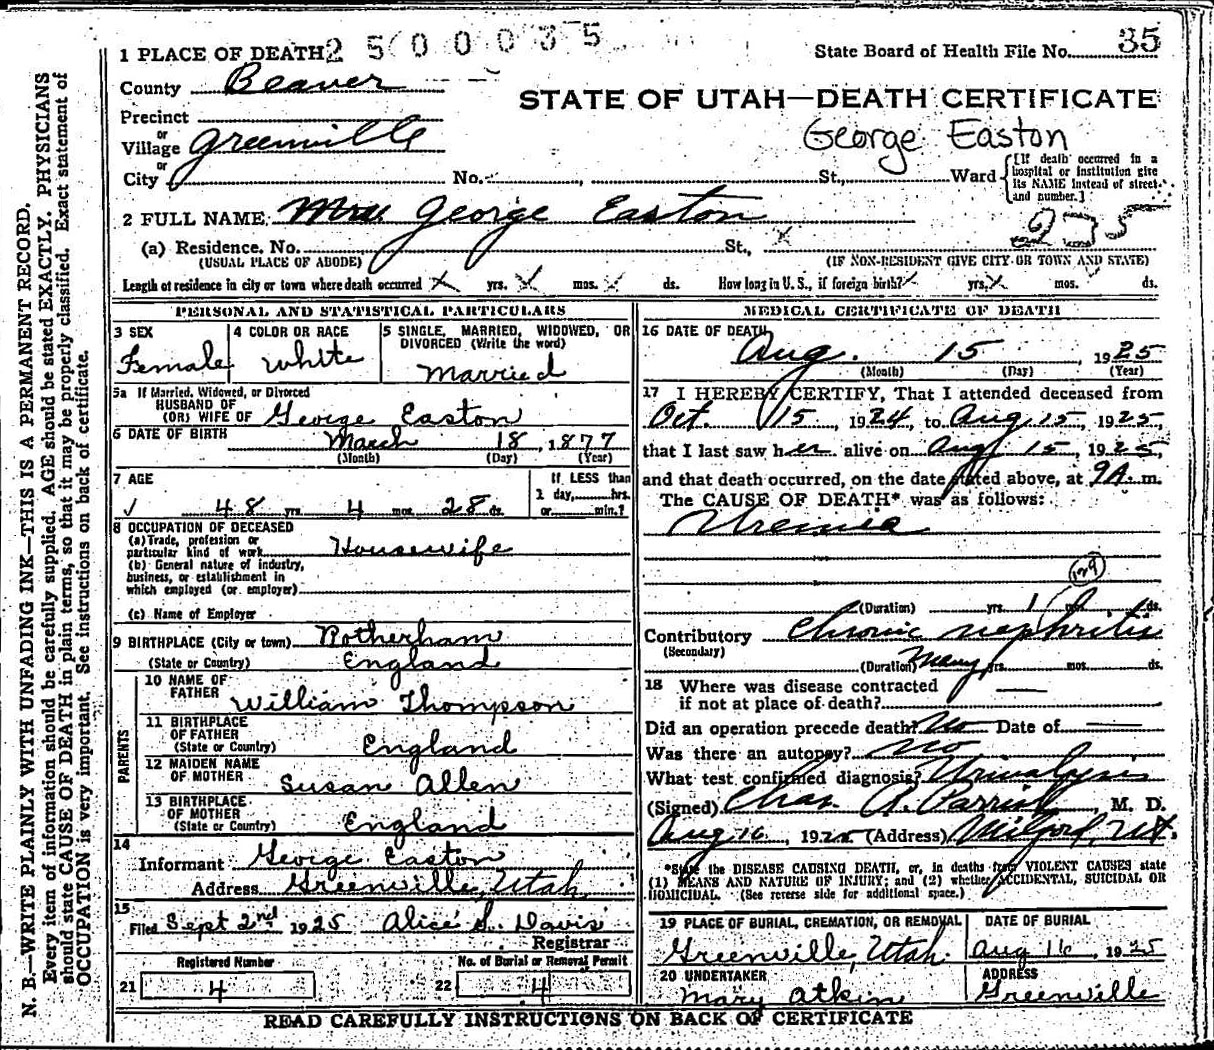 1 PLACE OF DEATH 2 5 0 0 0 3 5
State Board of Health File No. 35
County Beaver
STATE OF UTAH—DEATH CERTIFICATE
Precinct
or
Village Greenville
George Easton
or
City No. St., Ward
[If death occurred in a hospital or institution give its NAME instead of street and number.]
2 FULL NAME Mrs. George Easton
235
(a) Residence. No. St.,
(USUAL PLACE OF ABODE) (IF NON-RESIDENT GIVE CITY OR TOWN AND STATE)
Length of residence in city or town where death occurred X yrs. X mos. ds. How long in U. S., if foreign birth? yrs. X mos. ds.
PERSONAL AND STATISTICAL PARTICULARS
3 SEX
Female
4 COLOR OR RACE
White
5 SINGLE, MARRIED, WIDOWED, OR DIVORCED (Write the word)
Married
5a If Married, Widowed, or Divorced
HUSBAND OF
(OR) WIFE OF George Easton
6 DATE OF BIRTH March 18, 1877
(Month) (Day) (Year)
7 AGE
48 yrs. 4 mos. 28 ds.
If LESS than
1 day, hrs.
or min.?
8 OCCUPATION OF DECEASED
(a) Trade, profession or
particular kind of work Housewife
(b) General nature of industry,
business, or establishment in
which employed (or employer)
(c) Name of Employer
9 BIRTHPLACE (City or town) Rotherham
(State or Country) England
PARENTS
10 NAME OF
FATHER William Thompson
11 BIRTHPLACE
OF FATHER
(State or Country) England
12 MAIDEN NAME
OF MOTHER Susan Allen
13 BIRTHPLACE
OF MOTHER
(State or Country) England
14
Informant George Easton
Address Greenville, Utah
15
Filed Sept 2nd 1925 Alice S. Davis
Registrar
Registered Number No. of Burial or Removal Permit
21 4 22 4
MEDICAL CERTIFICATE OF DEATH
16 DATE OF DEATH
Aug. 15, 1925
(Month) (Day) (Year)
17 I HEREBY CERTIFY, That I attended deceased from
Oct. 15 1924, to Aug 15, 1925,
that I last saw her alive on Aug 15, 1925,
and that death occurred, on the date stated above, at 9A. m.
The CAUSE OF DEATH* was as follows:
Uremia
129
(Duration) yrs. 1 ds.
Contributory Chronic nephritis
(Secondary)
(Duration) Many yrs. mos. ds.
18 Where was disease contracted
if not at place of death?
Did an operation precede death? No Date of
Was there an autopsy? No
What test confirmed diagnosis? Urinalysis
(Signed) Chas. A. Parrish, M. D.
Aug 16, 1925 (Address) Milford, Ut.
*State the DISEASE CAUSING DEATH, or, in deaths from VIOLENT CAUSES state
(1) MEANS AND NATURE OF INJURY; and (2) whether ACCIDENTAL, SUICIDAL OR
HOMICIDAL. (See reverse side for additional space.)
19 PLACE OF BURIAL, CREMATION, OR REMOVAL
Greenville, Utah.
DATE OF BURIAL
Aug 16, 1925
20 UNDERTAKER
Mary Atkin
ADDRESS
Greenville
READ CAREFULLY INSTRUCTIONS ON BACK OF CERTIFICATE
N. B.—WRITE PLAINLY WITH UNFADING INK—THIS IS A PERMANENT RECORD.
Every item of information should be carefully supplied. AGE should be stated EXACTLY. PHYSICIANS
should state CAUSE OF DEATH in plain terms, so that it may be properly classified. Exact statement of
OCCUPATION is very important. See instructions on back of certificate.